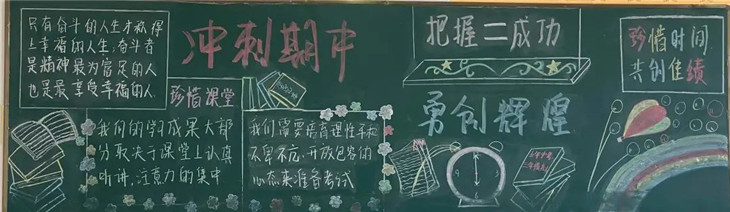 只有奋斗的人生才称得
上幸福的人生,奋斗者
是精神最为富足的人
也是最享受幸福的人.
冲刺期中
珍惜课堂
我们的学成果大部
分取决于课堂上认真
听讲,注意力的集中
我们需要培育理性平和
不卑不亢,开放包容的
心态来准备考试
把握 成功
勇创辉煌
珍惜时间
共创佳绩